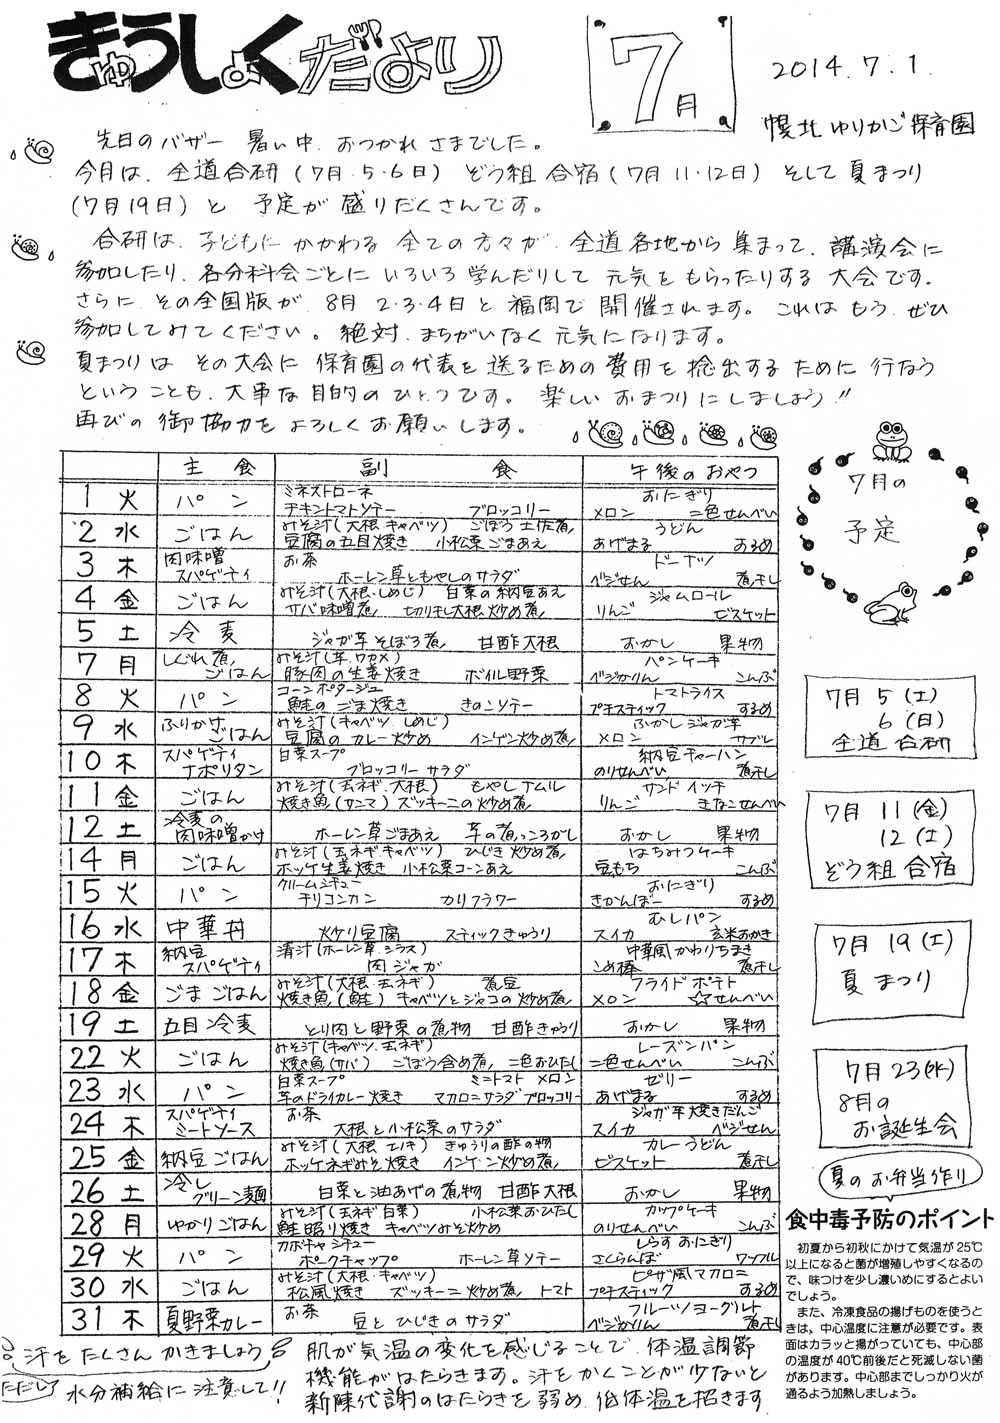 きゅうしょくだより
7月
2014.7.1.
幌北ゆりかご保育園
先日のバザー 暑い中、おつかれさまでした。
今月は、全道合研(7月5・6日) ぞう組合宿(7月11・12日) そして夏まつり
(7月19日)と 予定が盛りだくさんです。
合研は、子どもにかかわる全ての方々が、全道各地から集まって、講演会に
参加したり、各分科会ごとにいろいろ学んだりして元気をもらったりする大会です。
さらにその全国版が 8月2・3・4日と福岡で開催されます。これはもう、ぜひ
参加してみてください。絶対、まちがいなく元気になります。
夏まつりは その大会に保育園の代表を送るための費用を捻出するために行なう
ということも、大事な目的のひとつです。楽しいおまつりにしましょう!!
再びの御協力をよろしくお願いします。
主食 副食 午後のおやつ
1 火 パン ミネストローネ チキントマトソテー ブロッコリー おにぎり メロン 二色せんべい
2 水 ごはん みそ汁(大根・キャベツ) ごぼう土佐煮 豆腐の五目焼き 小松菜ごまあえ うどん あげまる するめ
3 木 肉味噌スパゲティ お茶 ホーレン草ともやしのサラダ ドーナツ ベジせん 煮干し
4 金 ごはん みそ汁(大根・しめじ) 白菜の納豆あえ サバ味噌煮 切り干し大根炒め煮 ジャムロール りんご ビスケット
5 土 冷麦 ジャガ芋そぼろ煮 甘酢大根 おかし 果物
7 月 しぐれ煮ごはん みそ汁(芋・ワカメ) 豚肉の生姜焼き ボイル野菜 パンケーキ ベジかりん こんぶ
8 火 パン コーンポタージュ 鮭のごま焼き きのこソテー トマトライス プチスティック するめ
9 水 ふりかけごはん みそ汁(キャベツ・しめじ) 豆腐のカレー炒め インゲン炒め煮 ふかしジャガ芋 メロン サブレ
10 木 スパゲティナポリタン 白菜スープ ブロッコリーサラダ 納豆チャーハン のりせんべい 煮干し
11 金 ごはん みそ汁(玉ネギ・大根) もやしナムル 焼き魚(サンマ) ズッキーニの炒め煮 サンドイッチ りんご きなこせんべい
12 土 冷麦の肉味噌かけ ホーレン草ごまあえ 芋の煮っころがし おかし 果物
14 月 ごはん みそ汁(玉ネギ・キャベツ) ひじき炒め煮 ホッケ生姜焼き 小松菜コーンあえ はちみつケーキ 豆もち こんぶ
15 火 パン クリームシチュー チリコンカン カリフラワー おにぎり きかんぼー するめ
16 水 中華丼 炒り豆腐 スティックきゅうり むしパン スイカ 玄米おかき
17 木 納豆スパゲティ 清汁(ホーレン草・シラス) 肉ジャガ 中華風かわりちまき こめ棒 煮干し
18 金 ごまごはん みそ汁(大根・玉ネギ) 煮豆 焼き魚(鮭) キャベツとジャコの炒め煮 フライドポテト メロン ☆せんべい
19 土 五目冷麦 とり肉と野菜の煮物 甘酢きゅうり おかし 果物
22 火 ごはん みそ汁(キャベツ・玉ネギ) 焼き魚(サバ) ごぼう含め煮 二色おひたし レーズンパン 二色せんべい こんぶ
23 水 パン 白菜スープ ミニトマト メロン 芋のドライカレー焼き マカロニサラダ ブロッコリー ゼリー あげまる するめ
24 木 スパゲティミートソース お茶 大根と小松菜のサラダ ジャガ芋焼きだんご スイカ ベジせん
25 金 納豆ごはん みそ汁(大根・エノキ) きゅうりの酢の物 ホッケネギみそ焼き インゲン炒め煮 カレーうどん ビスケット 煮干し
26 土 冷しグリーン麺 白菜と油あげの煮物 甘酢大根 おかし 果物
28 月 ゆかりごはん みそ汁(玉ネギ・白菜) 小松菜おひたし 鮭照り焼き キャベツみそ炒め カップケーキ のりせんべい こんぶ
29 火 パン カボチャシチュー ポークチャップ ホーレン草ソテー しらすおにぎり さくらんぼ ワッフル
30 水 ごはん みそ汁(大根・キャベツ) 松風焼き ズッキーニ炒め煮 トマト ピザ風マカロニ プチスティック するめ
31 木 夏野菜カレー お茶 豆とひじきのサラダ フルーツヨーグルト ベジかりん 煮干し
7月の
予定
7月5(土)
6(日)
全道合研
7月11(金)
12(土)
ぞう組合宿
7月19(土)
夏まつり
7月23(水)
8月の
お誕生会
夏のお弁当作り
食中毒予防のポイント
初夏から初秋にかけて気温が25℃
以上になると菌が増殖しやすくなるの
で、味つけを少し濃いめにするとよい
でしょう。
また、冷凍食品の揚げものを使うと
きは、中心温度に注意が必要です。表
面はカラッと揚がっていても、中心部
の温度が40℃前後だと死滅しない菌
があります。中心部までしっかり火が
通るよう加熱しましょう。
汗をたくさんかきましょう
ただし 水分補給に注意して!!
肌が気温の変化を感じることで、体温調節
機能がはたらきます。汗をかくことが少ないと
新陳代謝のはたらきを弱め、低体温を招きます